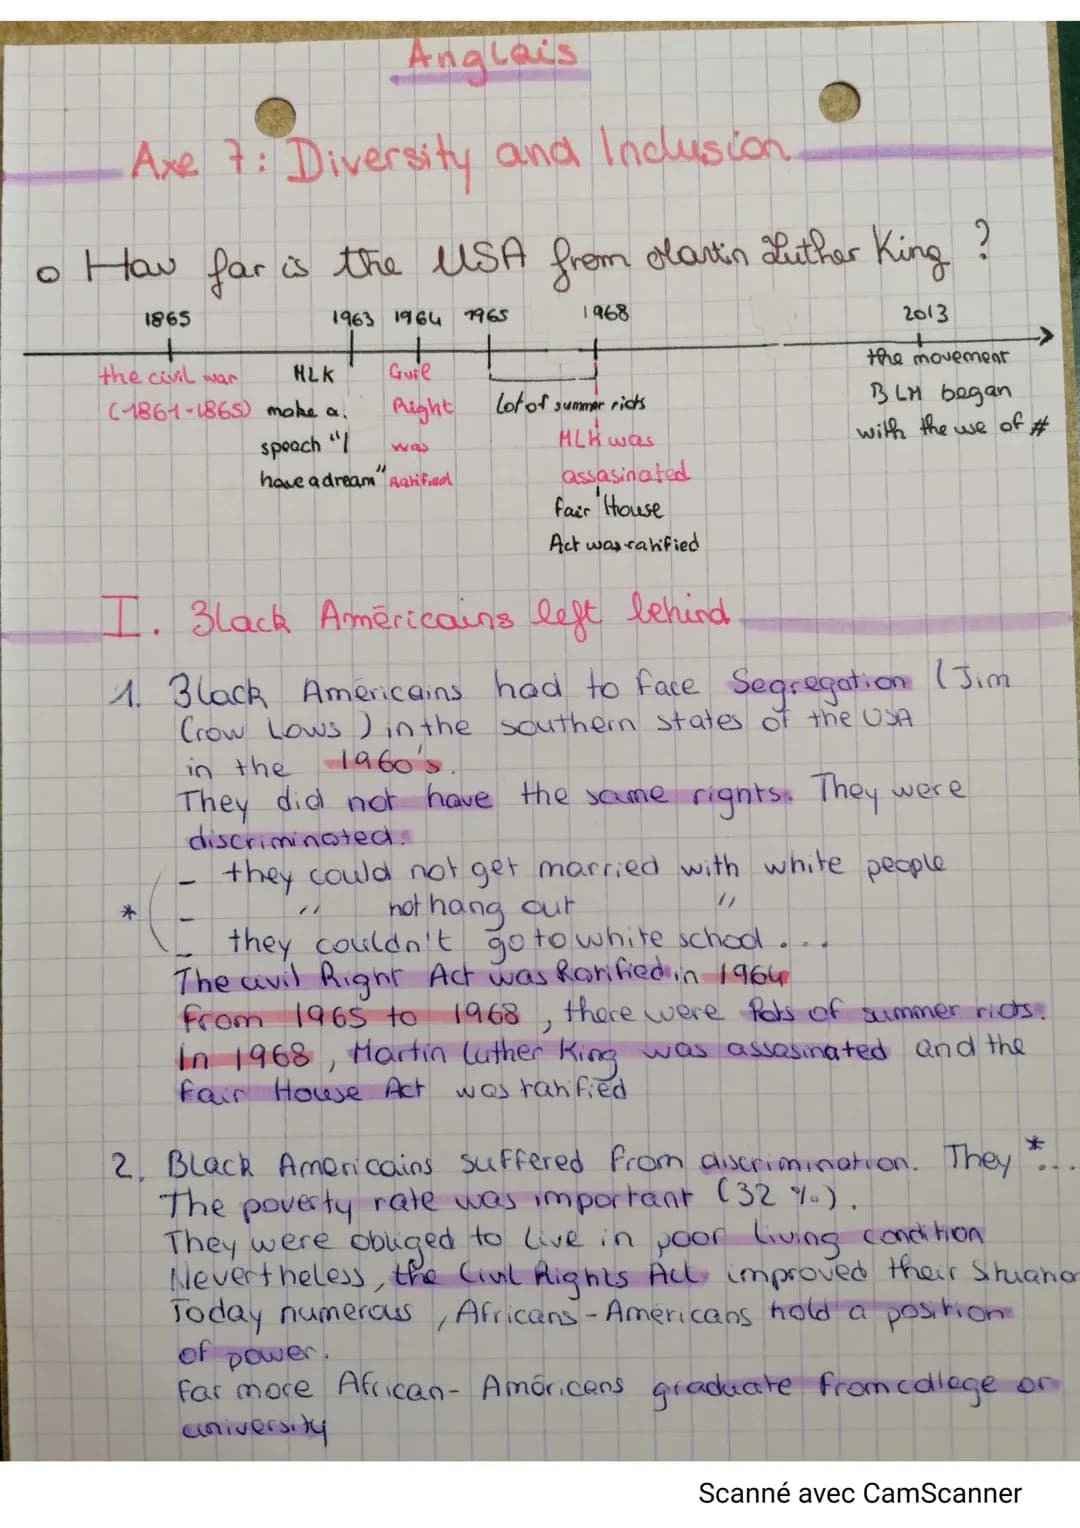 Anglais
Axe 7: Diversity and Inclusion
o How far is the USA from Martin Luther King ?
1865 1963 1964 1965 1968 2013
the civil war
(1861-1865)
MLK
make a
speech "I
have a dream"
Right
was
Ratified
Lot of summer riots
MLK was
assasinated
fair House
Act was ratified
the movement
BLM began
with the use of #
I. Black Américains left behind
1. Black Américains had to face Segregation (Jim
Crow Laws) in the southern states of the USA
in the 1960's.
They did not have the same rights. They were
discriminated.
- they could not get married with white people
* - " not hang out "
- they couldn't go to white school ...
The civil Right Act was Ratified in 1964
From 1965 to 1968, there were lots of summer riots.
In 1968, Martin Luther King was assasinated and the
fair House Act was ratified
2. Black Américains suffered from discrimination. They *...
The poverty rate was important (32 %).
They were obliged to live in poor living condition
Nevertheless, the Civil Rights Act improved their Situation
Today numerous, Africans-Américans hold a position
of power.
far more African-Américans graduate from college or
university
Scanné avec CamScanner